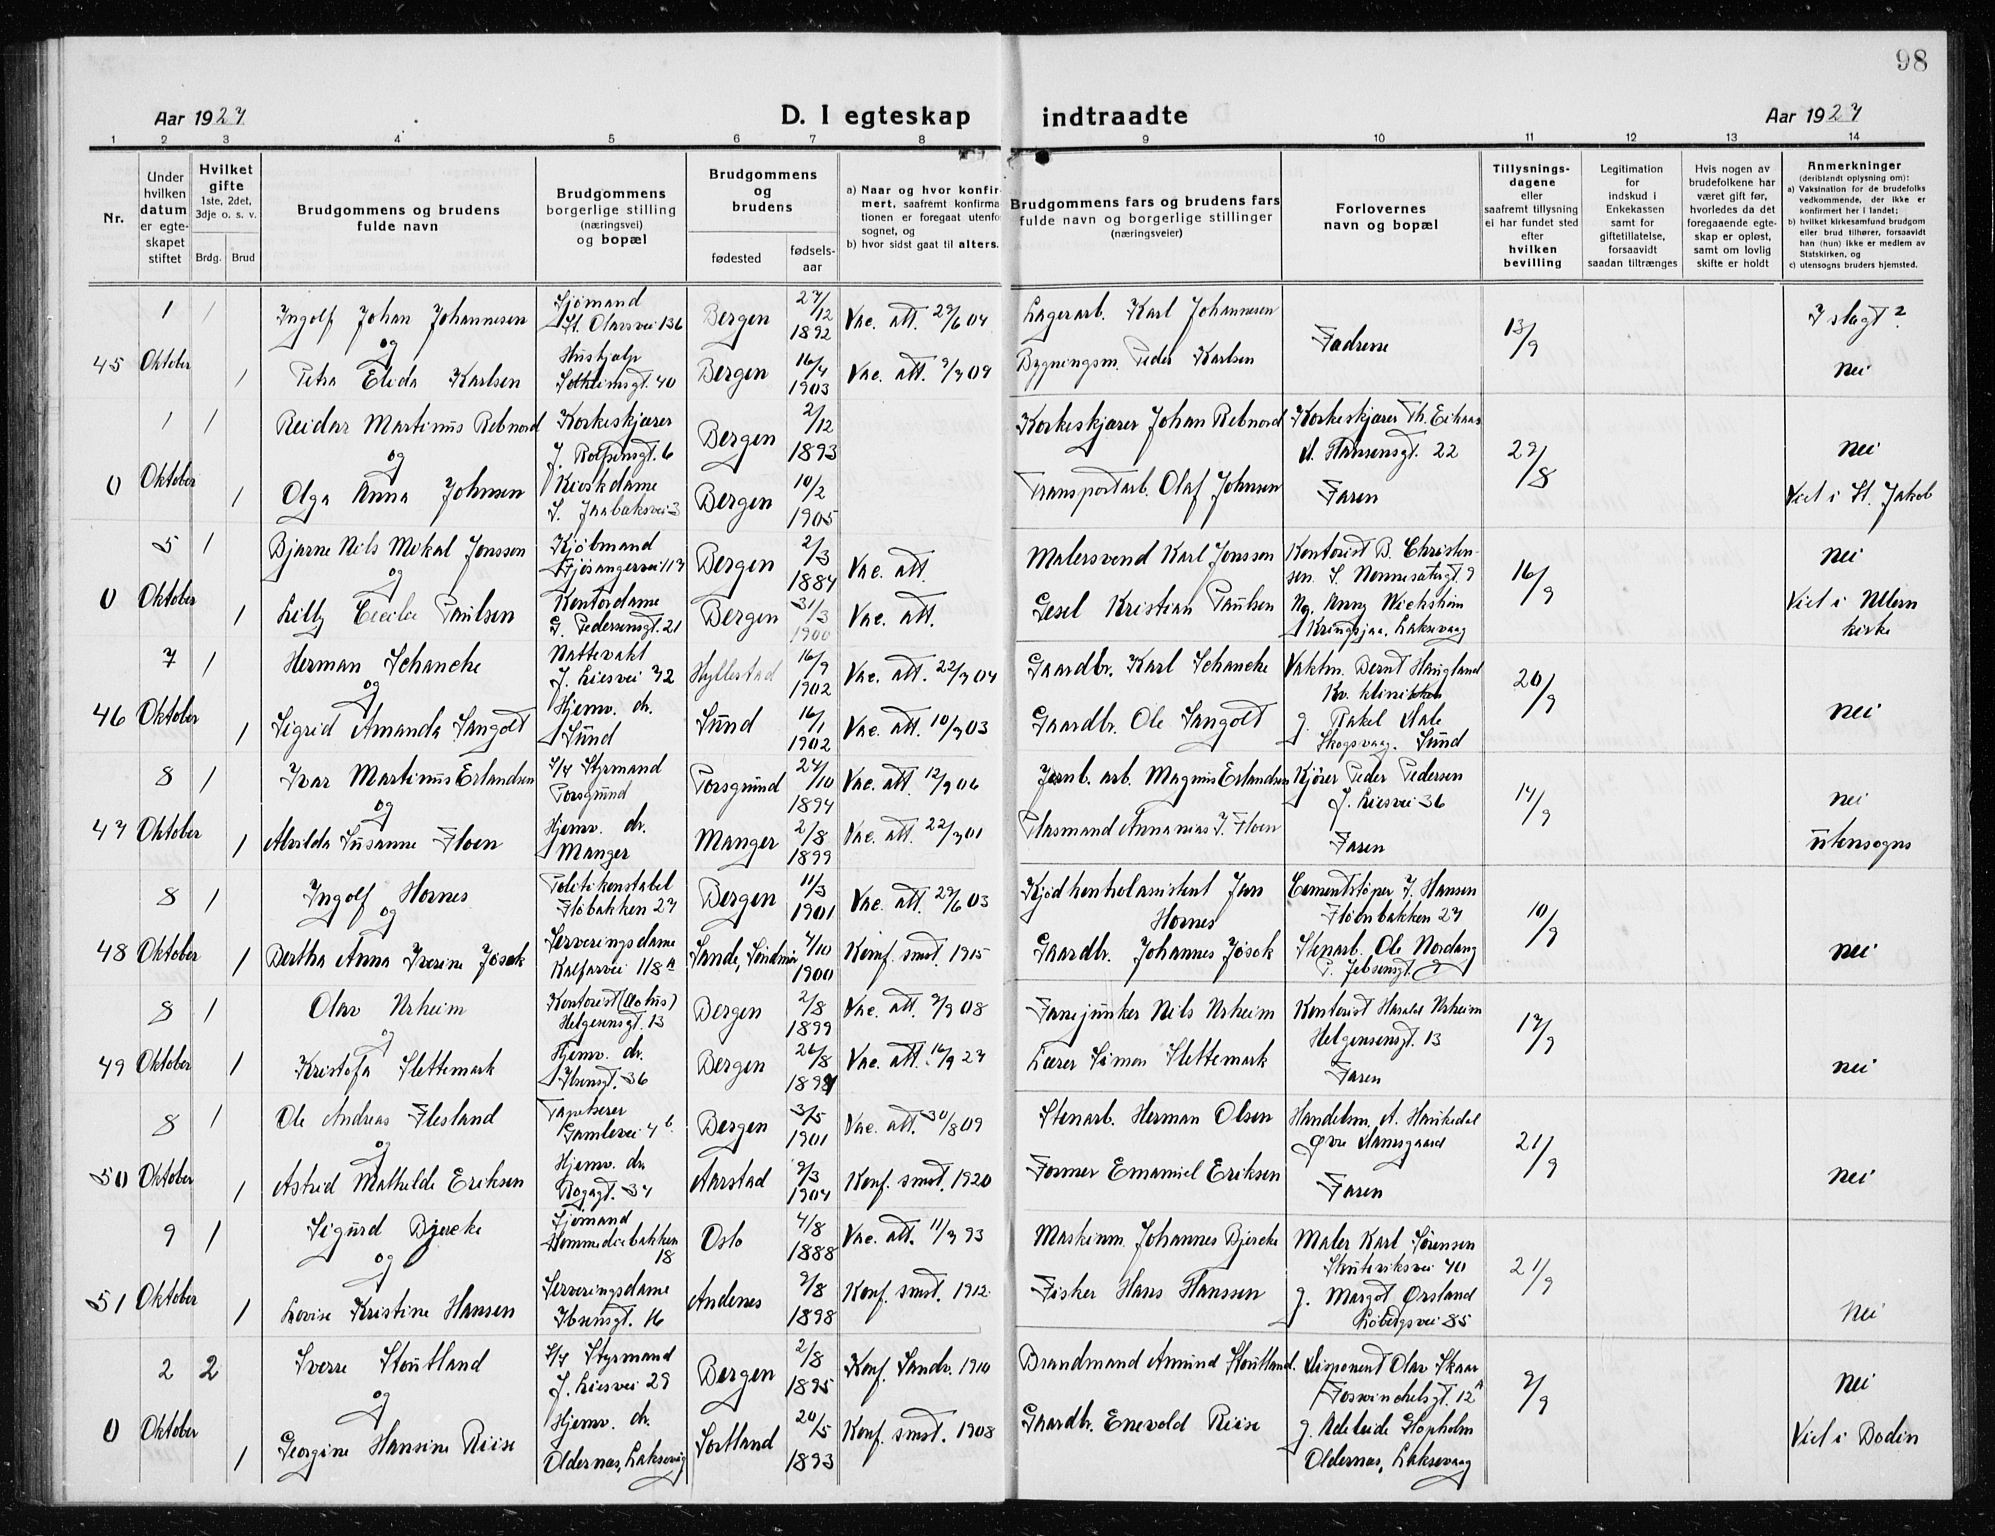 98
Aar 1927
D. I egteskap indtraadte
Aar 1927
1 2 3 4 5 6 7 8 9 10 11 12 13 14
Nr.
Under hvilken datum er egteskapet stiftet
Hvilket gifte 1ste, 2det, 3dje o. s. v.
Brdg. Brud
Brudgommens og brudens fulde navn
Brudgommens borgerlige stilling (næringsvei) og bopæl
Brudgommens og brudens
fødested
fødsels-aar
a) Naar og hvor konfir-
mert, saafremt konfirma
tionen er foregaat utenfo
sognet, og
b) hvor sidst gaat til alters.
Brudgommens fars og brudens fars
fulde navn og borgerlige stillinger
(næringsveier)
Forlovernes
navn og bopæl
Tillysnings-
dagene
eller
saafremt tillysning
ei har fundet sted
efter
hvilken
bevilling
Legitimation
for
indskud i
Enkekassen
samt for
giftetillatelse,
forsaavidt
saadan tiltrænges
Hvis nogen av
brudefolkene har
været gift før,
hvorledes da det
foregaaende egte-
skap er opløst,
samt om lovlig
skifte er holdt
Anmerkninger
(deriblandt oplysning om):
a) Vaksination for de brudefolks
vedkommende, der ikke er
konfirmert her i landet;
b) hvilket kirkesamfund brudgom
eller brud tilhører, forsaavidt
han (hun) ikke er medlem av
Statskirken, og
c) utensogns bruders hjemsted.
1 1 Ingolf Johan Johannesen Sjømand St. Olavsvei 136 Bergen 27/12 1892 Vac. att. 29/6 04 Lagerarb. Karl Johannesen Fædrene 13/9 I slegt?
og
45 Oktober 1 Petra Elida Karlsen Hushjælp Solheimsgt. 40 Bergen 16/4 1903 Vac. att. 9/7 09 Bygningsm. Peder Karlsen nei
1 1 Reidar Martinus Rebnord Korkeskjærer J. Rolfsensgt. 6 Bergen 2/12 1893 Korkeskjærer Johan Rebnord Korkeskjærer Th. Eikaas A. Hansensgt. 22 29/8 nei
og
0 Oktober 1 Olga Anna Johnsen Kioskdame Bergen 10/2 1905 Transportarb. Olaf Johnsen Faren Viet i St. Jakob
5 1 Bjarne Nils Mikal Jonssen Kjøbmand Fjøsangervei 117 Bergen 2/3 1884 Vac. att. Malersvend Karl Jonssen Kontorist B. Christensen 16/9 nei
og
0 Oktober 1 Lilly Cecilie Paulsen Kontordame G. Pedersensgt. 21 Bergen 31/3 1900 Vac. att. Gesel Kristian Paulsen Kringsjaa, Laksevaag Viet i Ullern kirke
7 1 Herman Schancke Nattevakt J. Liesvei 32 Hyllestad 16/9 1902 Vac. att. 22/7 04 Gaardbr. Karl Schancke Vaktm. Bernt Haugland Kv. klinikken 20/9
og
46 Oktober 1 Sigrid Amanda Sangolt Hjemv. dr. Sund Sund 16/1 1902 Vac. att. 10/7 03 Gaardbr. Ole Sangolt g. Rakel Aale Skogsvaag. Sund nei
8 1 Ivar Martinus Erlandsen Styrmand Porsgrund Porsgrund 24/10 1894 Vac. att. 12/9 06 Jernb. arb. Magnus Erlandsen Kjører Peder Pedersen J. Liesvei 36 14/9 nei
og
47 Oktober 1 Alvilda Susanne Floen Hjemv. dr. Manger Manger 2/8 1899 Vac. att. 22/7 01 Plasmand Annanias J. Floen Faren utensogns
8 1 Ingolf Hornes Politikonstabel Fløbakken 27 Bergen 11/3 1901 Vac. att. 29/6 03 Kjødkontrolassistent Jars Hornes Cementstøper J. Hansen Fløenbakken 27 10/9
og
48 Oktober 1 Bertha Anna Iverine Jøsok Serveringsdame Kalfarvei 118 a Sande, Søndmør 4/10 1900 Konf. smst. 1915 Gaardbr. Johannes Jøsok Stenarb. Ole Nordang P. Jebsensgt. 9 nei
8 1 Olav Urheim Kontorist Helgesensgt. 13 Bergen 2/8 1899 Vac. att. 9/9 08 Fanejunker Nils Urheim Kontorist Harald Urheim Helgesensgt. 13 17/9
og
49 Oktober 1 Kristofa Slettemark Hjemv. dr. Ibsensgt. 36 Bergen 26/8 1898 Vac. att. 16/9 27 Lærer Simon Slettemark Faren nei
8 1 Ole Andreas Flesland Tapetserer Gamlevei 4 b. Bergen 3/5 1901 Vac. att. 30/8 09 Stenarb. Herman Olsen Handelsm. A. Haukedal Øvre Damsgaard 21/9
og
50 Oktober 1 Astrid Mathilde Eriksen Hjemv. dr. Rogagt. 34 Aarstad 9/3 1904 Konf. smst. 1920 Former Emanuel Eriksen Faren nei
9 1 Sigurd Bjercke Sjømand Lommedicbakken 18 Oslo 4/8 1888 Vac. att. 11/7 93 Maskinm. Johannes Bjercke Maler Karl Sørensen Skuteviksvei 40 21/9
og
51 Oktober 1 Lovise Kristine Hansen Serveringsdame Ibsensgt. 16 Andenes 9/8 1898 Konf. smst. 1912. Fisker Hans Hanssen g. Margot Ørsland Løbergsvei 85 nei
2 2 Sverre Stoutland Styrmand J. Liesvei 29 Bergen 2/8 1895 Konf. Sandv. 1910 Brandmand Amund Stoutland. Disponent Olav Skaar Foswinckelsgt. 12 A 9/9 nei
og
0 Oktober 1 Georgine Hansine Riise Hjemv. dr. Oldernæs, Laksevåg Sortland 20/5 1893 Konf. smst. 1908 Gaardbr. Enevold Riise g. Adeleide Stopholm Oldernæs, Laksevaag Viet i Bodin